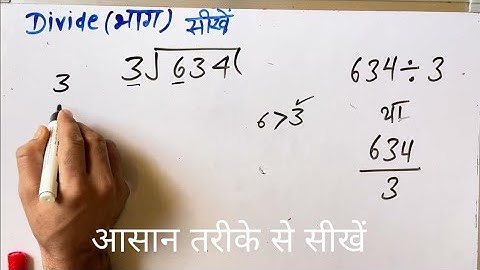 Divide (भाग) सीखें
3
3√634(
634÷3
6>3✓
या
634
3
आसान तरीके से सीखें